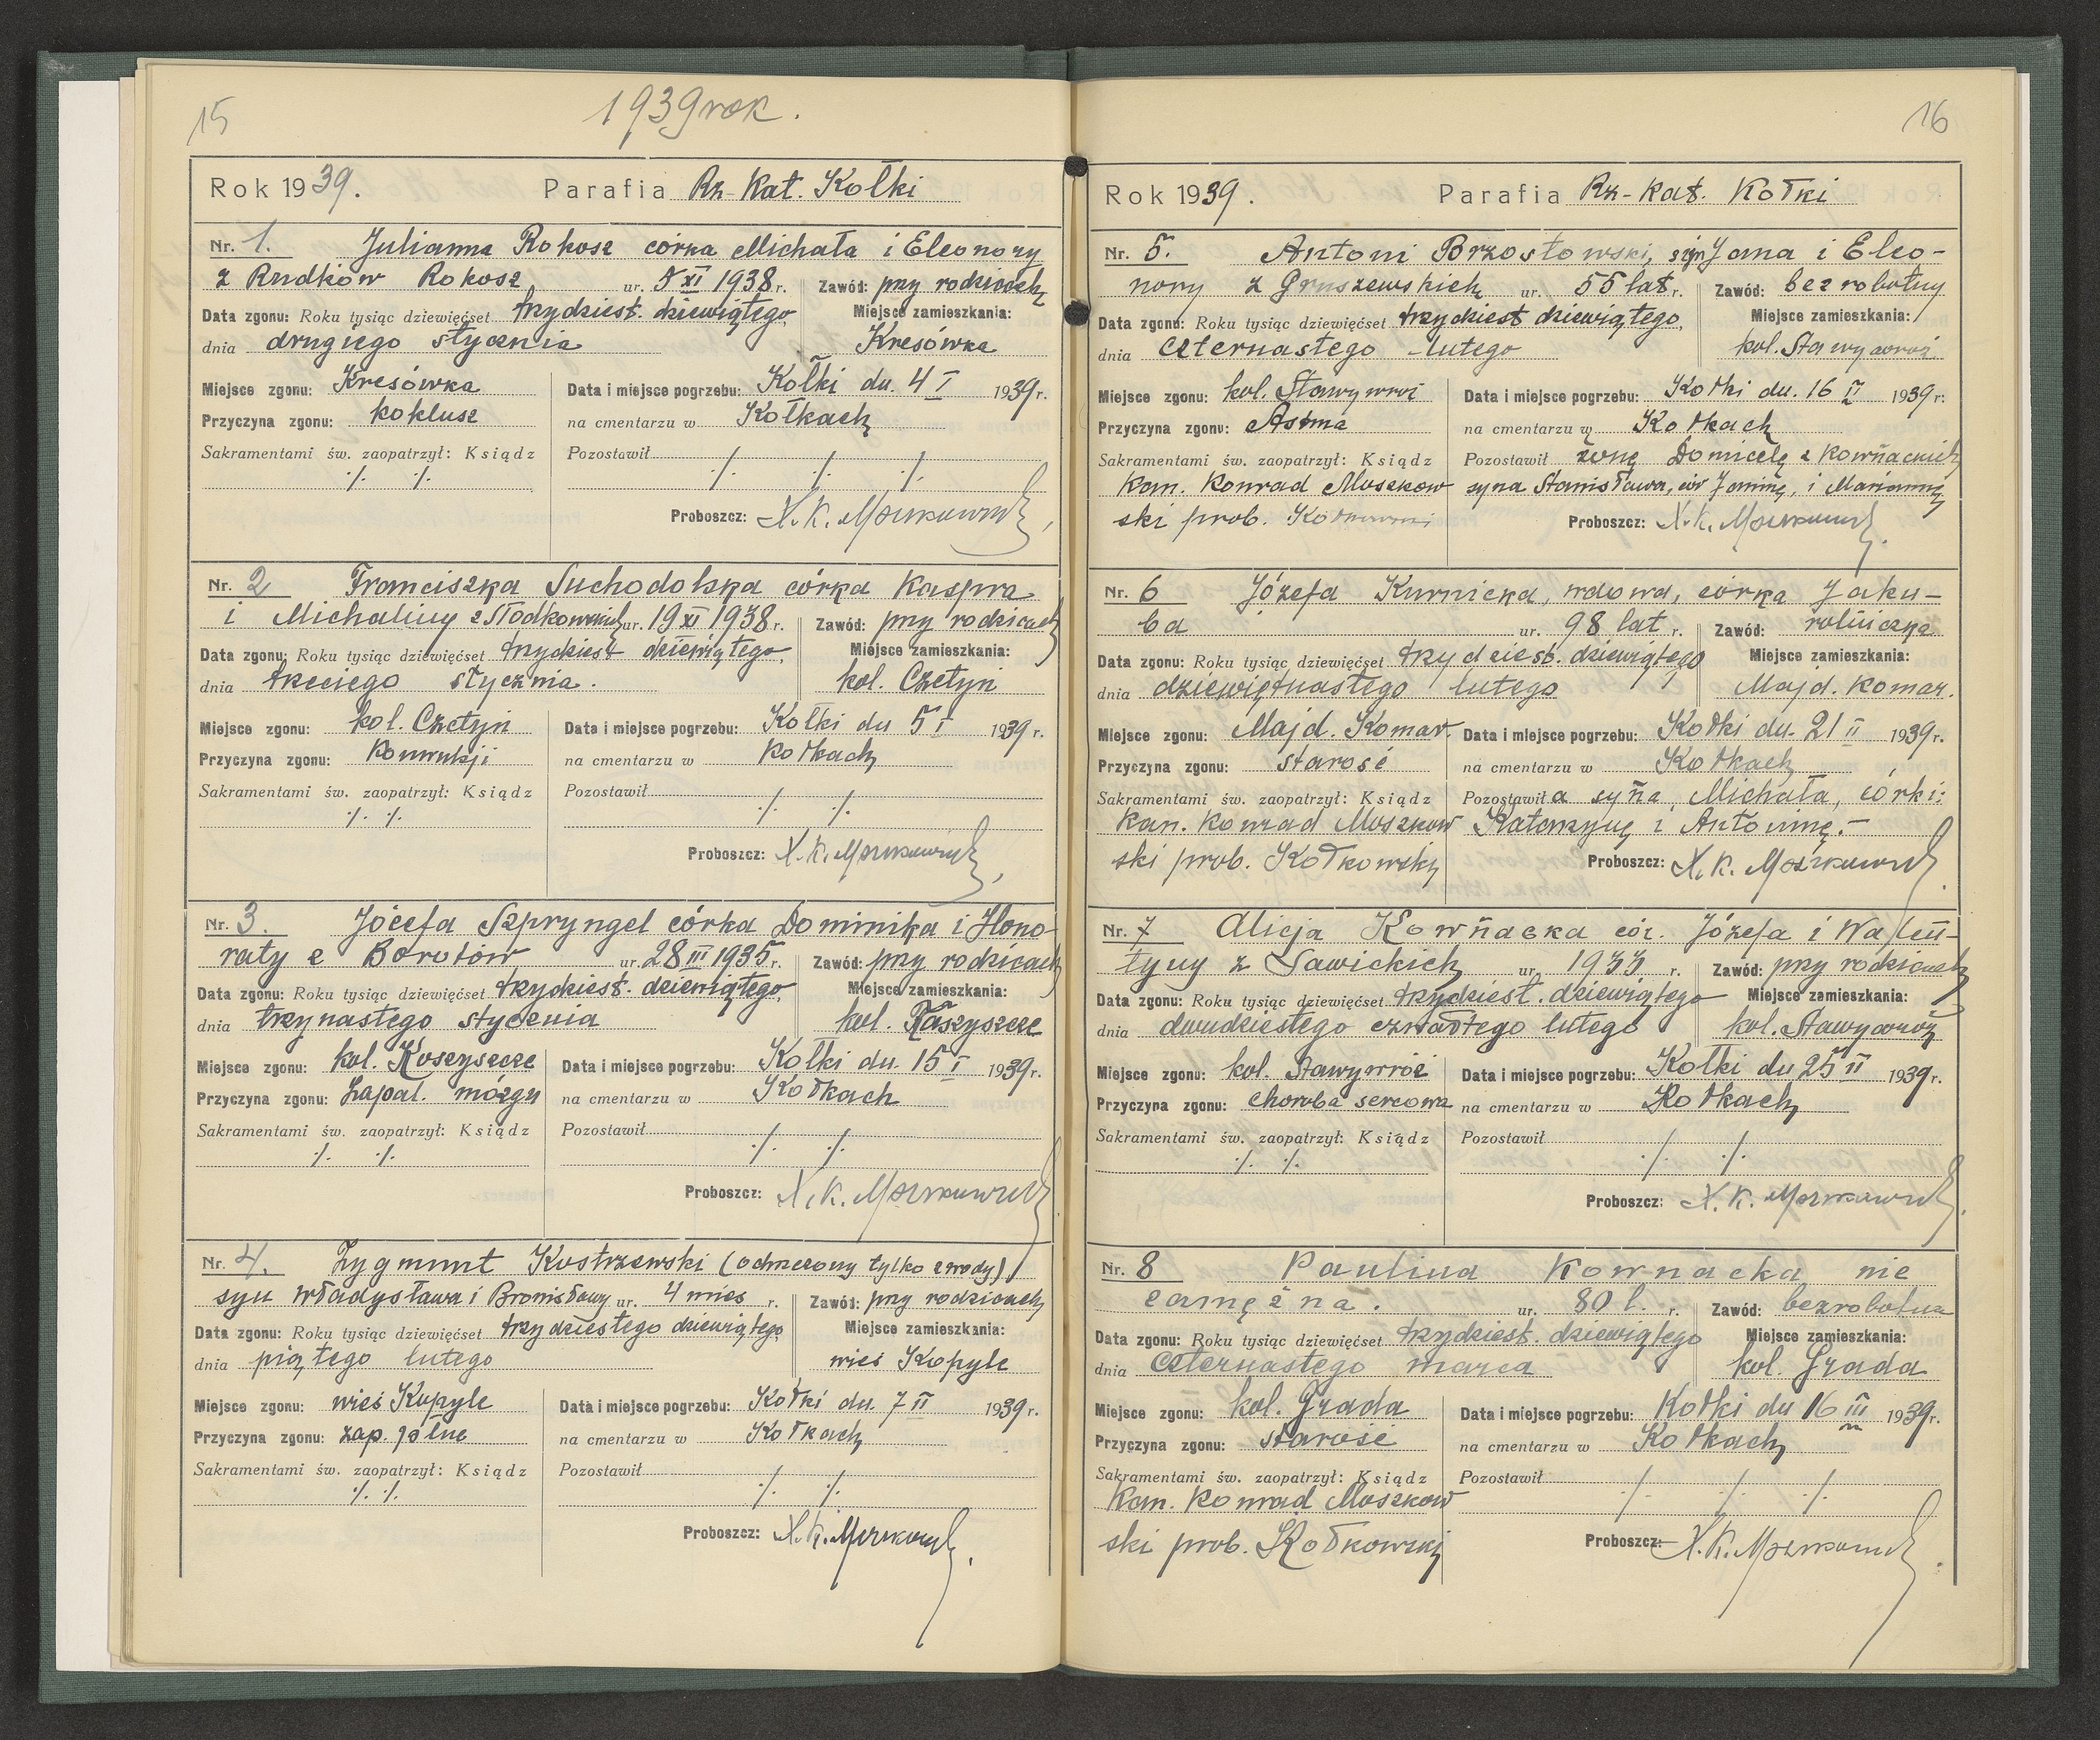 15
1939 rok.
Rok 1939. Parafia Rz-Kat. Kołki
Nr. 1. Julianna Rokosz córka Michała i Eleonory
z Rudków Rokosz ur. 5 XI 1938 r. Zawód: przy rodzicach
Data zgonu: Roku tysiąc dziewięćset trzydziest. dziewiątego Miejsce zamieszkania:
dnia drugiego stycznia Kresówka
Miejsce zgonu: Kresówka Data i miejsce pogrzebu: Kołki dn. 4 I 1939 r.
Przyczyna zgonu: koklusz na cmentarzu w Kołkach
Sakramentami św. zaopatrzył: Ksiądz Pozostawił
./. ./. ./. ./. ./.
Proboszcz: X. K. Moszkowski
Nr. 2 Franciszka Suchodolska córka Kaspra
i Michaliny z Słodkowskich ur. 19 XI 1938 r. Zawód: przy rodzicach
Data zgonu: Roku tysiąc dziewięćset trzydziest dziewiątego Miejsce zamieszkania:
dnia trzeciego stycznia. kol. Czetyń
Miejsce zgonu: kol. Czetyń Data i miejsce pogrzebu: Kołki dn 5 I 1939 r.
Przyczyna zgonu: Konwulsji na cmentarzu w Kołkach
Sakramentami św. zaopatrzył: Ksiądz Pozostawił
./. ./. ./. ./.
Proboszcz: X. K. Moszkowski
Nr. 3. Józefa Szpryngel córka Dominika i Hono-
raty z Borutów ur. 28 III 1935 r. Zawód: przy rodzicach
Data zgonu: Roku tysiąc dziewięćset trzydziest. dziewiątego Miejsce zamieszkania:
dnia trzynastego stycznia kol. Raszyszcze
Miejsce zgonu: kol. Koszyszcze Data i miejsce pogrzebu: Kołki dn. 15 I 1939 r.
Przyczyna zgonu: Zapal. mózgu na cmentarzu w Kołkach
Sakramentami św. zaopatrzył: Ksiądz Pozostawił
./. ./. ./. ./.
Proboszcz: X. K. Moszkowski
Nr. 4. Zygmunt Kostrzewski (ochrzczony tylko z wody)
syn Władysława i Bronisławy ur. 4 mies r. Zawód: przy rodzicach
Data zgonu: Roku tysiąc dziewięćset trzydziestego dziewiątego Miejsce zamieszkania:
dnia piątego lutego wieś Kopyle
Miejsce zgonu: wieś Kopyle Data i miejsce pogrzebu: Kołki dn. 7 II 1939 r.
Przyczyna zgonu: zap. na cmentarzu w Kołkach
Sakramentami św. zaopatrzył: Ksiądz Pozostawił
./. ./. ./. ./.
Proboszcz: X. K. Moszkowski
16
Rok 1939. Parafia Rz-Kat. Kołki
Nr. 5. Antoni Brzostowski, syn Jana i Eleo-
nory z Gruszewskich ur. 55 lat r. Zawód: bezrobotny
Data zgonu: Roku tysiąc dziewięćset trzydziest dziewiątego Miejsce zamieszkania:
dnia czternastego lutego kol. Stawywróż
Miejsce zgonu: kol. Stawywróż Data i miejsce pogrzebu: Kołki dn. 16 II 1939 r.
Przyczyna zgonu: Astma na cmentarzu w Kołkach
Sakramentami św. zaopatrzył: Ksiądz Pozostawił żonę Domicelę z Kowńackich
Kan. Konrad Moszkow syna Stanisława, cór Janinę, i Mariannę
ski prob. Kołkowski Proboszcz: X. K. Moszkowski
Nr. 6 Józefa Kurnicka, wdowa, córka Jaku-
ba ur. 98 lat r. Zawód: rolniczka
Data zgonu: Roku tysiąc dziewięćset trzydziest. dziewiątego Miejsce zamieszkania:
dnia dziewiętnastego lutego Majd. Komar.
Miejsce zgonu: Majd. Komar. Data i miejsce pogrzebu: Kołki dn. 21 II 1939 r.
Przyczyna zgonu: starość na cmentarzu w Kołkach
Sakramentami św. zaopatrzył: Ksiądz Pozostawiła syna Michała, córki:
Kan. Konrad Moszkow Katarzynę i Antoninę.-
ski prob. Kołkowski Proboszcz: X. K. Moszkowski
Nr. 7 Alicja Kowńacka cór. Józefa i Waleń-
tyny z Sawickich ur. 1933 r. Zawód: przy rodzicach
Data zgonu: Roku tysiąc dziewięćset trzydziest. dziewiątego Miejsce zamieszkania:
dnia dwudziestego czwartego lutego kol. Stawywróż
Miejsce zgonu: kol. Stawywróż Data i miejsce pogrzebu: Kołki dn 25 II 1939 r.
Przyczyna zgonu: choroba sercowa na cmentarzu w Kołkach
Sakramentami św. zaopatrzył: Ksiądz Pozostawił
./. ./. ./. ./.
Proboszcz: X. K. Moszkowski
Nr. 8 Paulina Kownacka nie
zamężna. ur. 80 l. r. Zawód: bezrobotna
Data zgonu: Roku tysiąc dziewięćset trzydziest. dziewiątego Miejsce zamieszkania:
dnia czternastego marca kol. Grada
Miejsce zgonu: kol. Grada Data i miejsce pogrzebu: Kołki dn 16 III 1939 r.
Przyczyna zgonu: starość na cmentarzu w Kołkach
Sakramentami św. zaopatrzył: Ksiądz Pozostawił
Kan. Konrad Moszkow ./. ./. ./.
ski prob. Kołkowski Proboszcz: X. K. Moszkowski